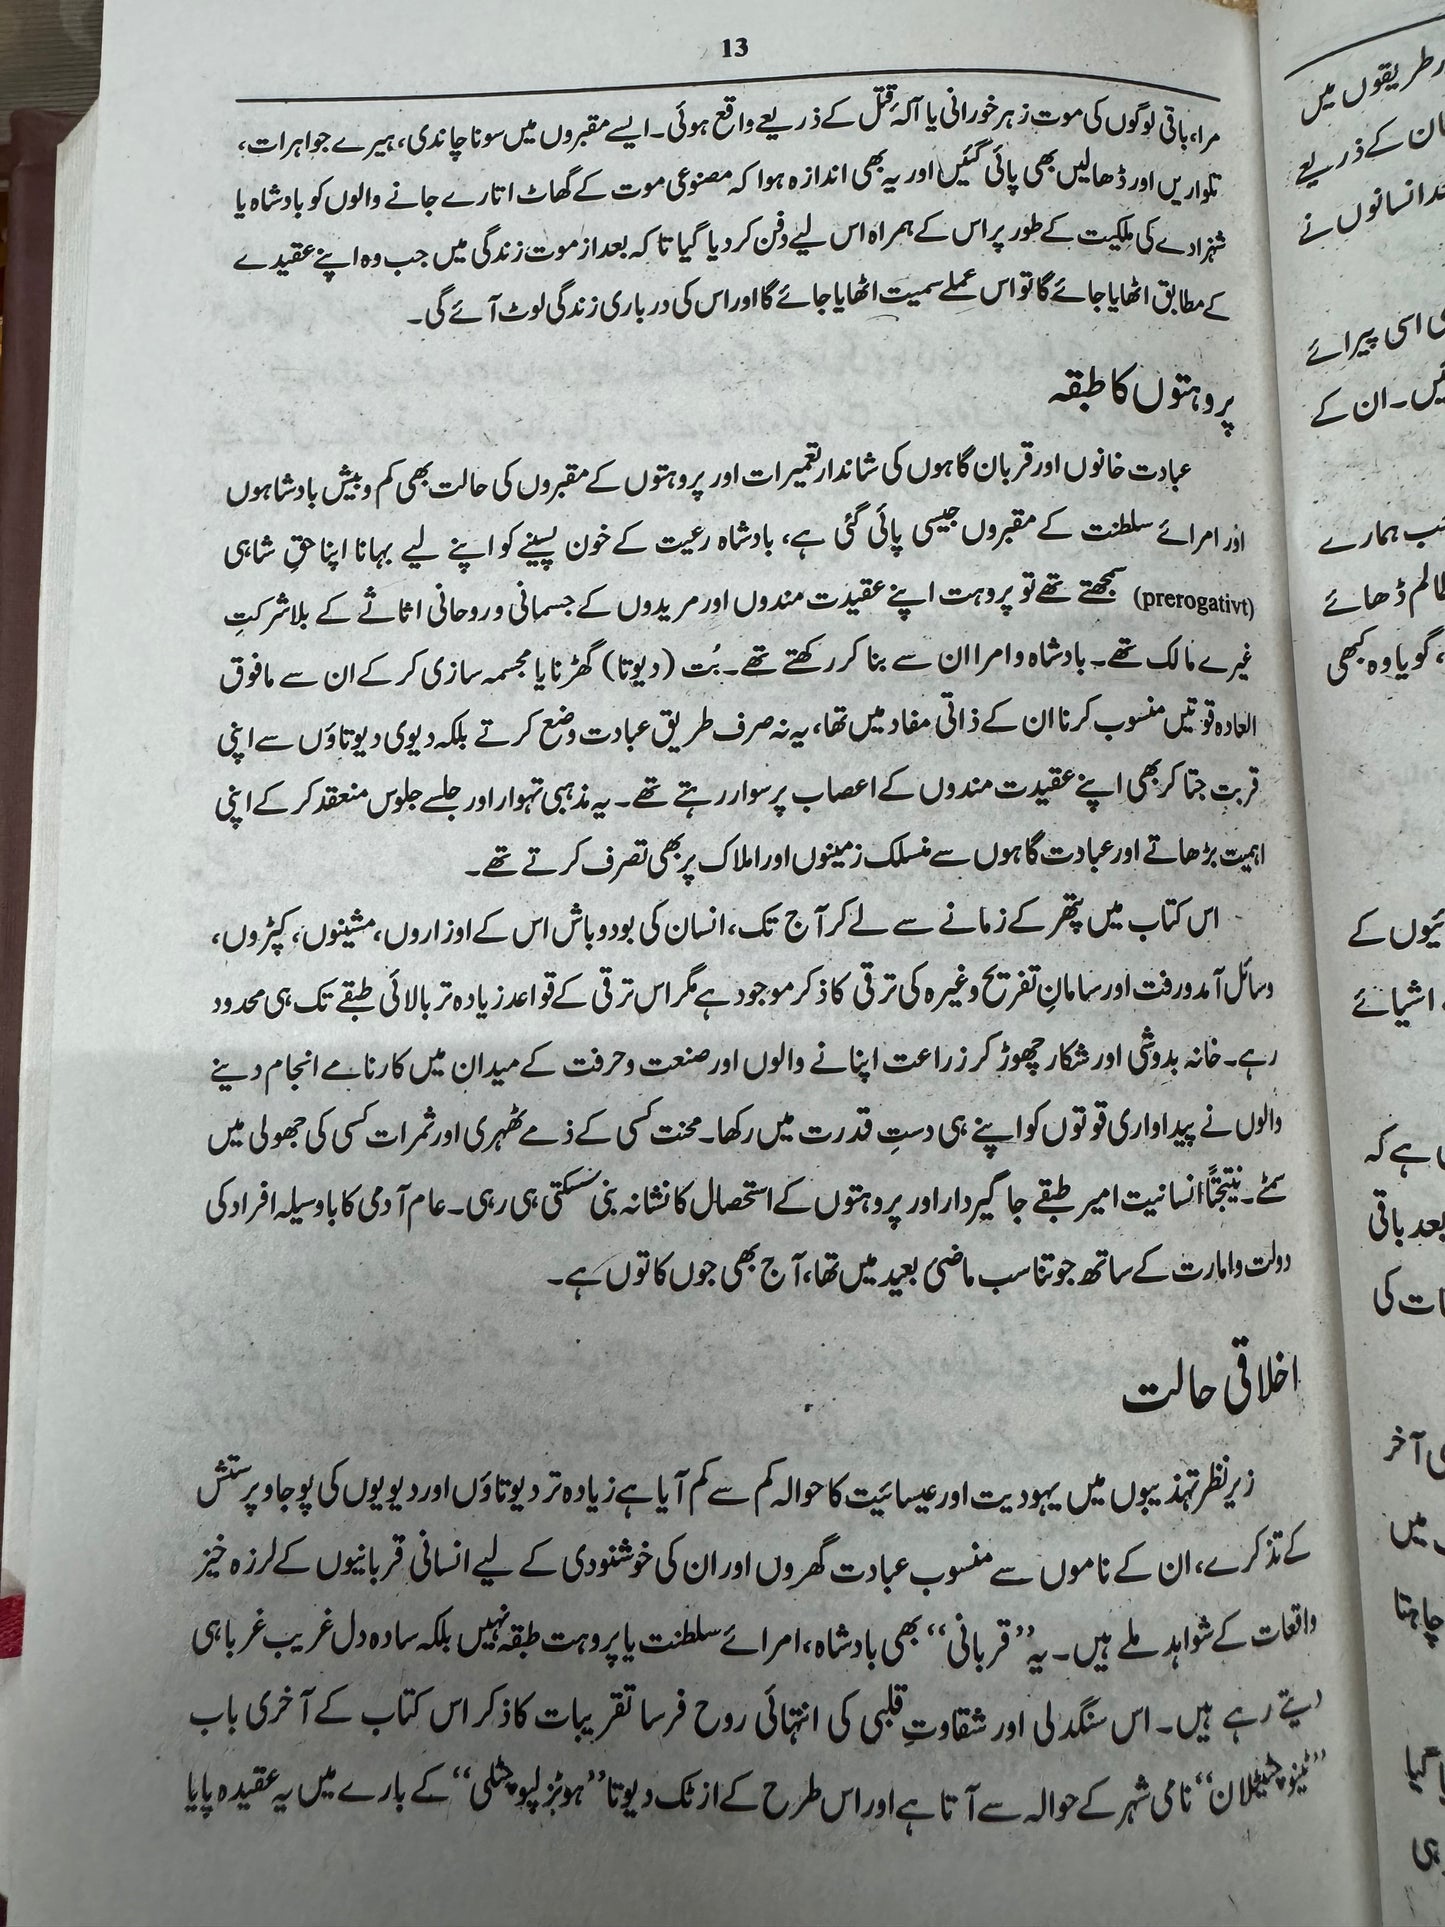 13
مرا، باقی لوگوں کی موت زہر خورانی یا آلۂ قتل کے ذریعے واقع ہوئی۔ ایسے مقبروں میں سونا چاندی، ہیرے جواہرات،
تلواریں اور ڈھالیں بھی پائی گئیں اور یہ بھی اندازہ ہوا کہ مصنوعی موت کے گھاٹ اتارے جانے والوں کو بادشاہ یا
شہزادے کی ملکیت کے طور پر اس کے ہمراہ اس لیے دفن کر دیا گیا تا کہ بعد از موت زندگی میں جب وہ اپنے عقیدے
کے مطابق اٹھایا جائے گا تو اس عملے سمیت اٹھایا جائے گا اور اس کی درباری زندگی لوٹ آئے گی۔
پروہتوں کا طبقہ
عبادت خانوں اور قربان گاہوں کی شاندار تعمیرات اور پروہتوں کے مقبروں کی حالت بھی کم و بیش بادشاہوں
اور امرائے سلطنت کے مقبروں جیسی پائی گئی ہے، بادشاہ رعیت کے خون پسینے کو اپنے لیے بہانا اپنا حقِ شاہی
(prerogativt) سمجھتے تھے تو پروہت اپنے عقیدت مندوں اور مریدوں کے جسمانی و روحانی اثاثے کے بلا شرکتِ
غیرے مالک تھے۔ بادشاہ و امرا ان سے بنا کر رکھتے تھے۔ بُت (دیوتا) گھڑنا یا مجسمہ سازی کر کے ان سے مافوق
العادہ قوتیں منسوب کرنا ان کے ذاتی مفاد میں تھا، یہ نہ صرف طریق عبادت وضع کرتے بلکہ دیوی دیوتاؤں سے اپنی
قربت جتا کر بھی اپنے عقیدت مندوں کے اعصاب پر سوار رہتے تھے۔ یہ مذہبی تہوار اور جلسے جلوس منعقد کر کے اپنی
اہمیت بڑھاتے اور عبادت گاہوں سے منسلک زمینوں اور املاک پر بھی تصرف کرتے تھے۔
اس کتاب میں پتھر کے زمانے سے لے کر آج تک، انسان کی بود و باش اس کے اوزاروں، مشینوں، کپڑوں،
وسائل آمدورفت اور سامانِ تفریح وغیرہ کی ترقی کا ذکر موجود ہے مگر اس ترقی کے قواعد زیادہ تر بالائی طبقے تک ہی محدود
رہے۔ خانہ بدوشی اور شکار چھوڑ کر زراعت اپنانے والوں اور صنعت و حرفت کے میدان میں کارنامے انجام دینے
والوں نے پیداواری قوتوں کو اپنے ہی دستِ قدرت میں رکھا۔ محنت کسی کے ذمے ٹھہری اور ثمرات کسی کی جھولی میں
سمٹے۔ نتیجتاً انسانیت امیر طبقے جاگیردار اور پروہتوں کے استحصال کا نشانہ بنی سسکتی ہی رہی۔ عام آدمی کا باوسیلہ افراد کی
دولت و امارت کے ساتھ جو تناسب ماضیٔ بعید میں تھا، آج بھی جوں کا توں ہے۔
اخلاقی حالت
زیرِ نظر تہذیبوں میں یہودیت اور عیسائیت کا حوالہ کم سے کم آیا ہے زیادہ تر دیوتاؤں اور دیویوں کی پوجا و پرستش
کے تذکرے، ان کے ناموں سے منسوب عبادت گھروں اور ان کی خوشنودی کے لیے انسانی قربانیوں کے لرزہ خیز
واقعات کے شواہد ملے ہیں۔ یہ ”قربانی“ بھی بادشاہ، امرائے سلطنت یا پروہت طبقہ نہیں بلکہ سادہ دل غریب غربا ہی
دیتے رہے ہیں۔ اس سنگدلی اور شقاوتِ قلبی کی انتہائی روح فرسا تقریبات کا ذکر اس کتاب کے آخری باب
نامی شہر کے حوالہ سے آتا ہے اور اس طرح کے ازٹک دیوتا ”ہوئزلپوچٹلی“ کے بارے میں یہ عقیدہ پایا
طریقوں میں
ان کے ذریعے
انسانوں نے
اسی پیرائے
ان کے
ہمارے
ڈھائے
، گویا وہ کبھی
کے
اشیائے
ہے کہ
بعد باقی
کی
آخر
میں
چاہتا
گیا
ہی